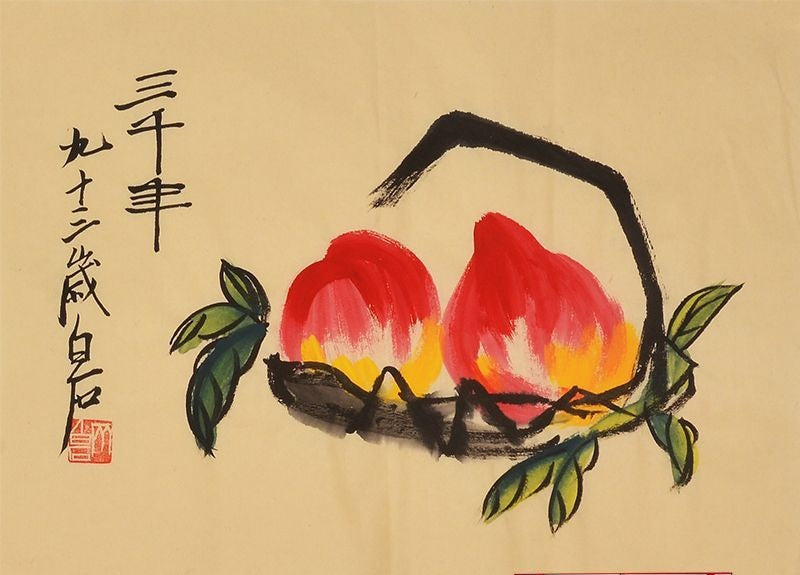 三千年
九十二歲白石